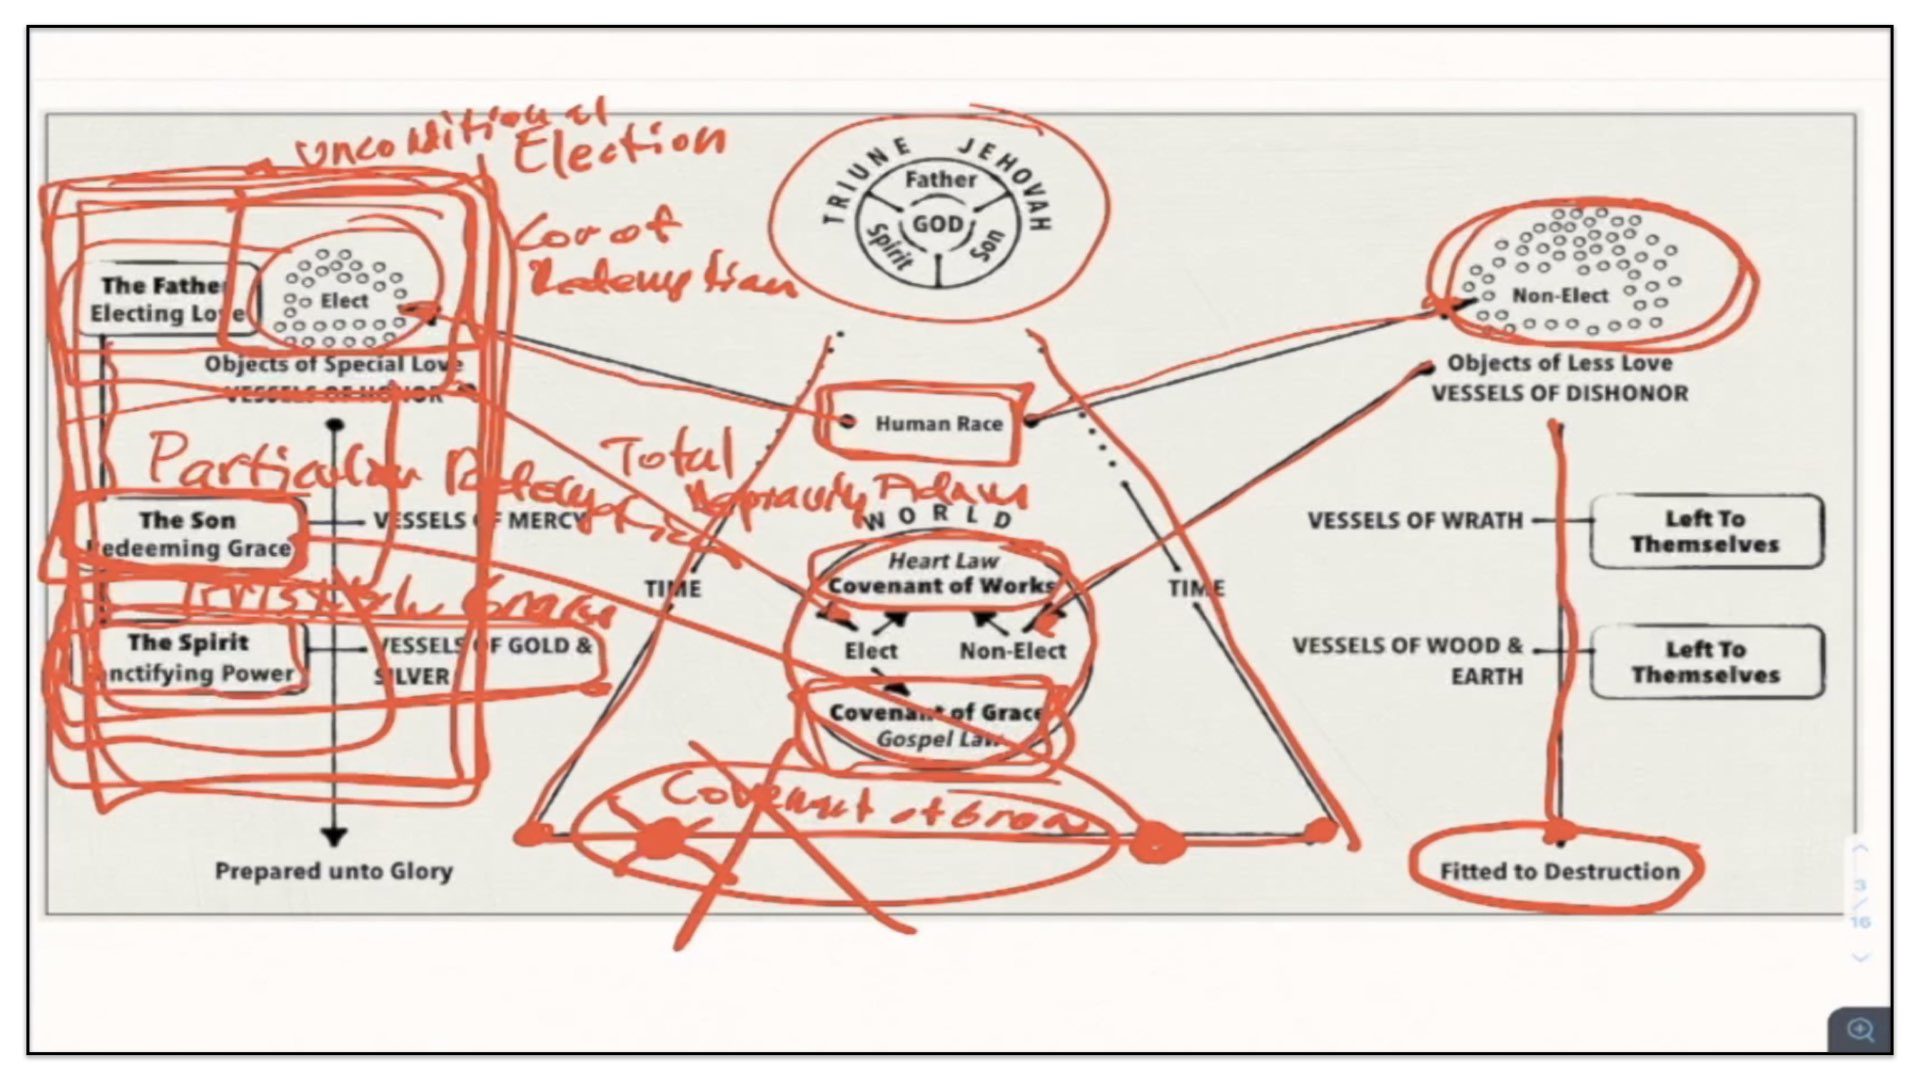 Unconditional
Election
Cov of
Redemption
TRIUNE JEHOVAH
Father
GOD
Spirit
Son
The Father
Electing Love
Elect
Objects of Special Love
VESSELS OF HONOR
Human Race
Non-Elect
Objects of Less Love
VESSELS OF DISHONOR
Particular Redemption
Total
Depravity Adam
The Son
Redeeming Grace
VESSELS OF MERCY
WORLD
Heart Law
Covenant of Works
Elect
Non-Elect
Covenant of Grace
Gospel Law
TIME
TIME
VESSELS OF WRATH
Left To
Themselves
Grace
The Spirit
Sanctifying Power
VESSELS OF GOLD &
SILVER
VESSELS OF WOOD &
EARTH
Left To
Themselves
Covenant of Grace
Prepared unto Glory
Fitted to Destruction
3
/
16